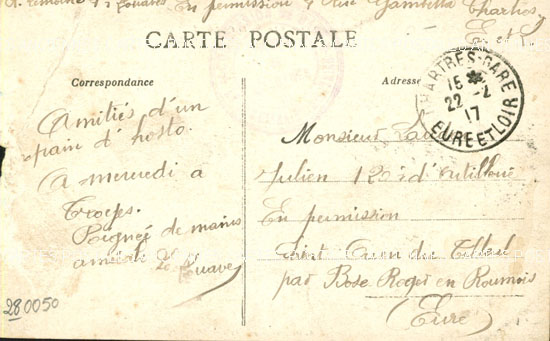 En permission 4 Rue Gambetta Chartres
CARTE POSTALE
Correspondance
Adresse
CHARTRES-GARE
15 *
22 -2
17
EURE ET LOIR
Amitiés d'un
d'hosto.
A mercredi a
Poignée de mains
amicale Le Zouave
Monsieur
Julien 120è d'
En permission
Saint Ouen du Tilleul
par Bosc Roger en Roumois
(Eure)
280050